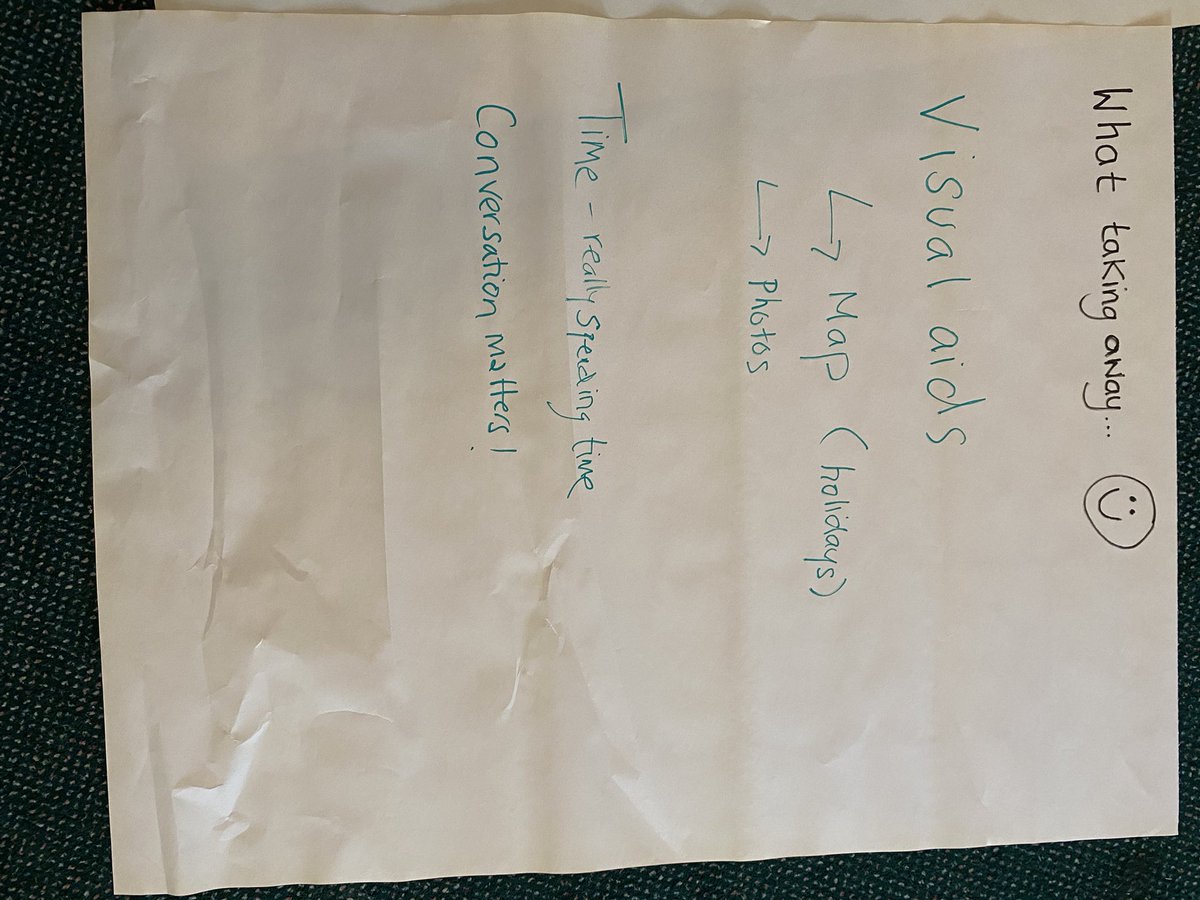 What taking away...
Visual aids
↳ Map (holidays)
↳ Photos
Time - really speeding time
Conversation matters!